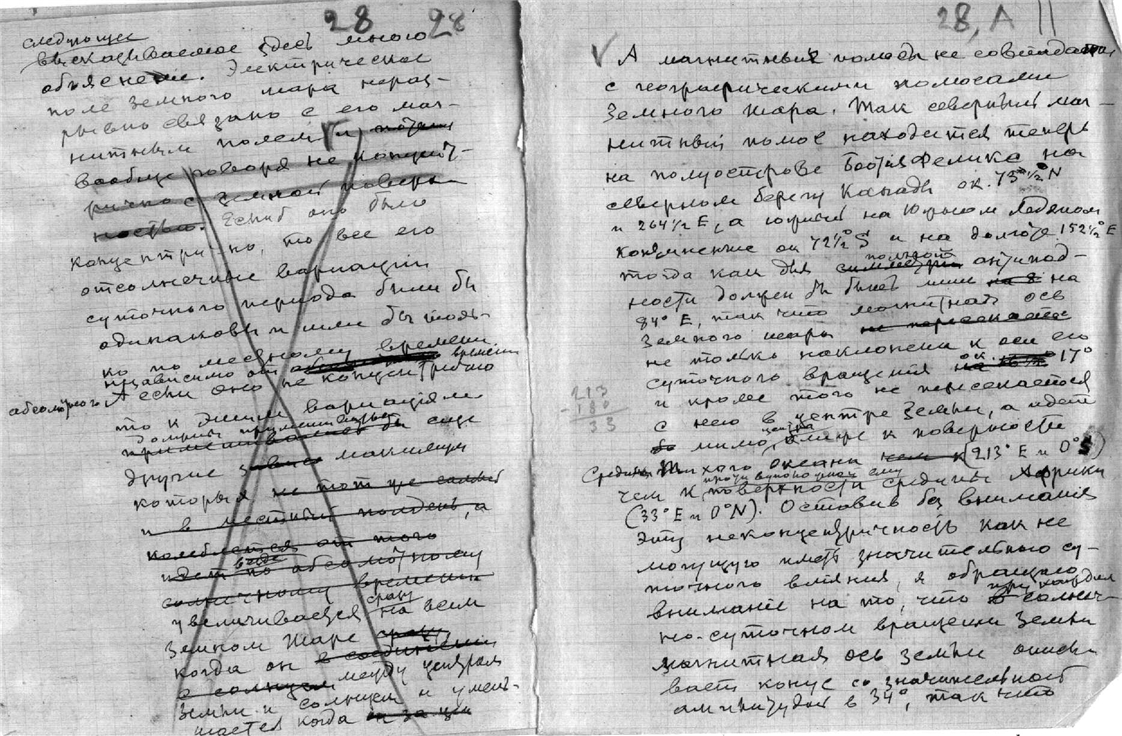 28 28
следующее
высказываемое здесь много
объяснение. Электрическое
поле земного шара нераз-
рывно связано с его маг-
нитным полем и
вообще говоря не концент-
рично с земной поверх-
ностью. Еслиб оно было
концентрично, то все его
отсолнечные вариации
суточного периода были бы
одинаковы и шли бы толь-
ко по местному времени
независимо от времени
абсолютного А если оно не концентрично
то к этим вариациям
должны
примешиваться бы еще
другие
которыя не тот же самый
и в местный полдень, а
колеблется от того
идет по абсолютному
солнечному времени
увеличивается сразу на всем
земном шаре сразу
когда он в соединении
с солнцем между центром
земли и солнцем и умень-
шается когда он за цен
28, А ||
V А магнитные полюсы не совпадают
с географическими полюсами
земного шара. Так северный маг-
нитный полюс находится теперь
на полуострове Боотия Феликс на
северном берегу Канады ок. 73°½ N
и 264½ E, а южный на Южном Ледяном
континенте ок 72½° S и на долготе 152½° E
тогда как для полной симметрии антипод-
ности должен бы быть на
84° E, так что магнитная ось
земного шара не пересекается
не только наклонена к оси его
суточного вращения ок. 17°
и кроме того не пересекается
с нею в центре Земли, а идет
мимо центра, ближе к поверхности
средины Тихого океана (213° E и 0° S)
чем к противуположному ему
поверхности средины Африки
(33° E и 0° N). Оставив без внимания
эту неконцентричность как не
могущую иметь значительного су-
точного влияния, я обращаю
внимание на то, что при каждом
в солнеч-
но-суточном вращении Земли
магнитная ось Земли описы-
вает конус со значительной
амплитудой в 34°, так что
213
-180
33